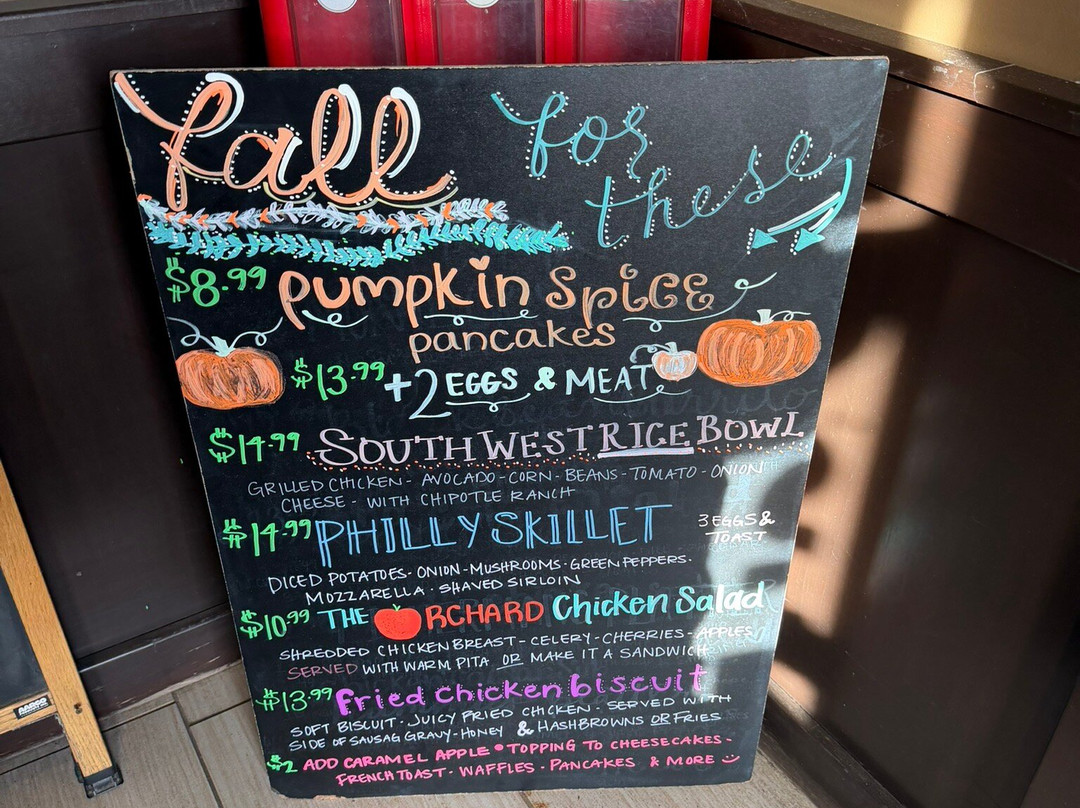 Fall for these
$8.99 pumpkin spice
pancakes
$13.99 +2 EGGS & MEAT
$14.99 SOUTHWEST RICE BOWL
GRILLED CHICKEN - AVOCADO - CORN - BEANS - TOMATO - ONION
CHEESE - WITH CHIPOTLE RANCH
$14.99 PHILLY SKILLET 3 EGGS &
TOAST
DICED POTATOES · ONION · MUSHROOMS · GREEN PEPPERS ·
MOZZARELLA · SHAVED SIRLOIN
$10.99 THE ORCHARD Chicken Salad
SHREDDED CHICKEN BREAST - CELERY - CHERRIES - APPLES
SERVED WITH WARM PITA OR MAKE IT A SANDWICH
$13.99 Fried chicken biscuit
SOFT BISCUIT · JUICY FRIED CHICKEN · SERVED WITH
SIDE OF SAUSAG GRAVY - HONEY & HASHBROWNS OR FRIES
$2 ADD CARAMEL APPLE • TOPPING TO CHEESECAKES -
FRENCH TOAST · WAFFLES · PANCAKES & MORE
AARCO